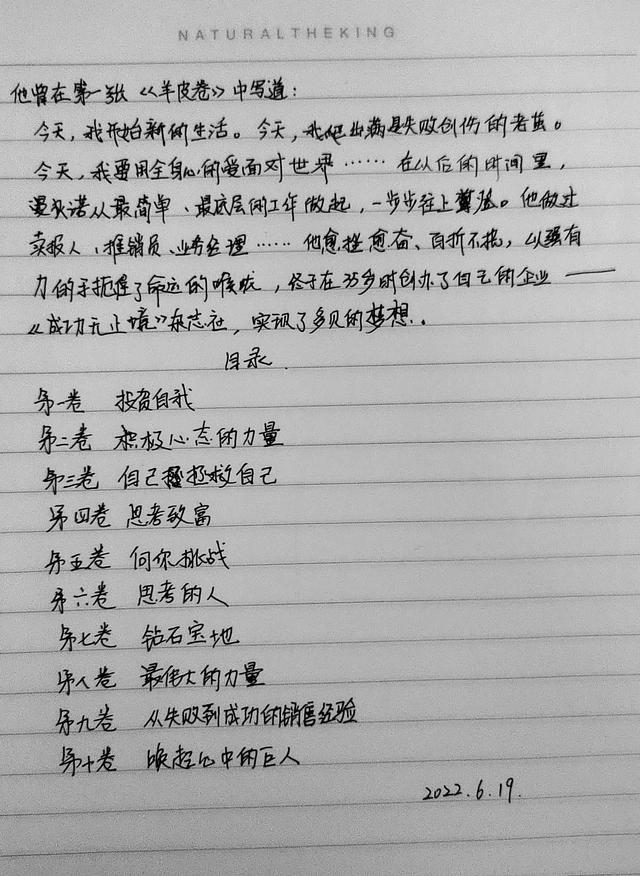 NATURALTHEKING
他曾在第一张《羊皮卷》中写道：
今天，我开始新的生活。今天，我爬出满是失败创伤的老茧。
今天，我要用全身心的爱面对世界……在以后的时间里，
诺从最简单、最底层的工作做起，一步步往上。他做过
卖报人、推销员、业务经理……他愈挫愈奋、百折不挠，以强有
力的手扼握了命运的喉咙，终于在35岁时创办了自己的企业——
《成功无止境》杂志社，实现了多见的梦想。
目录
第一卷 投资自我
第二卷 积极心态的力量
第三卷 自己拯救自己
第四卷 思考致富
第五卷 向你挑战
第六卷 思考的人
第七卷 钻石宝地
第八卷 最伟大的力量
第九卷 从失败到成功的销售经验
第十卷 唤起心中的巨人
2022.6.19.